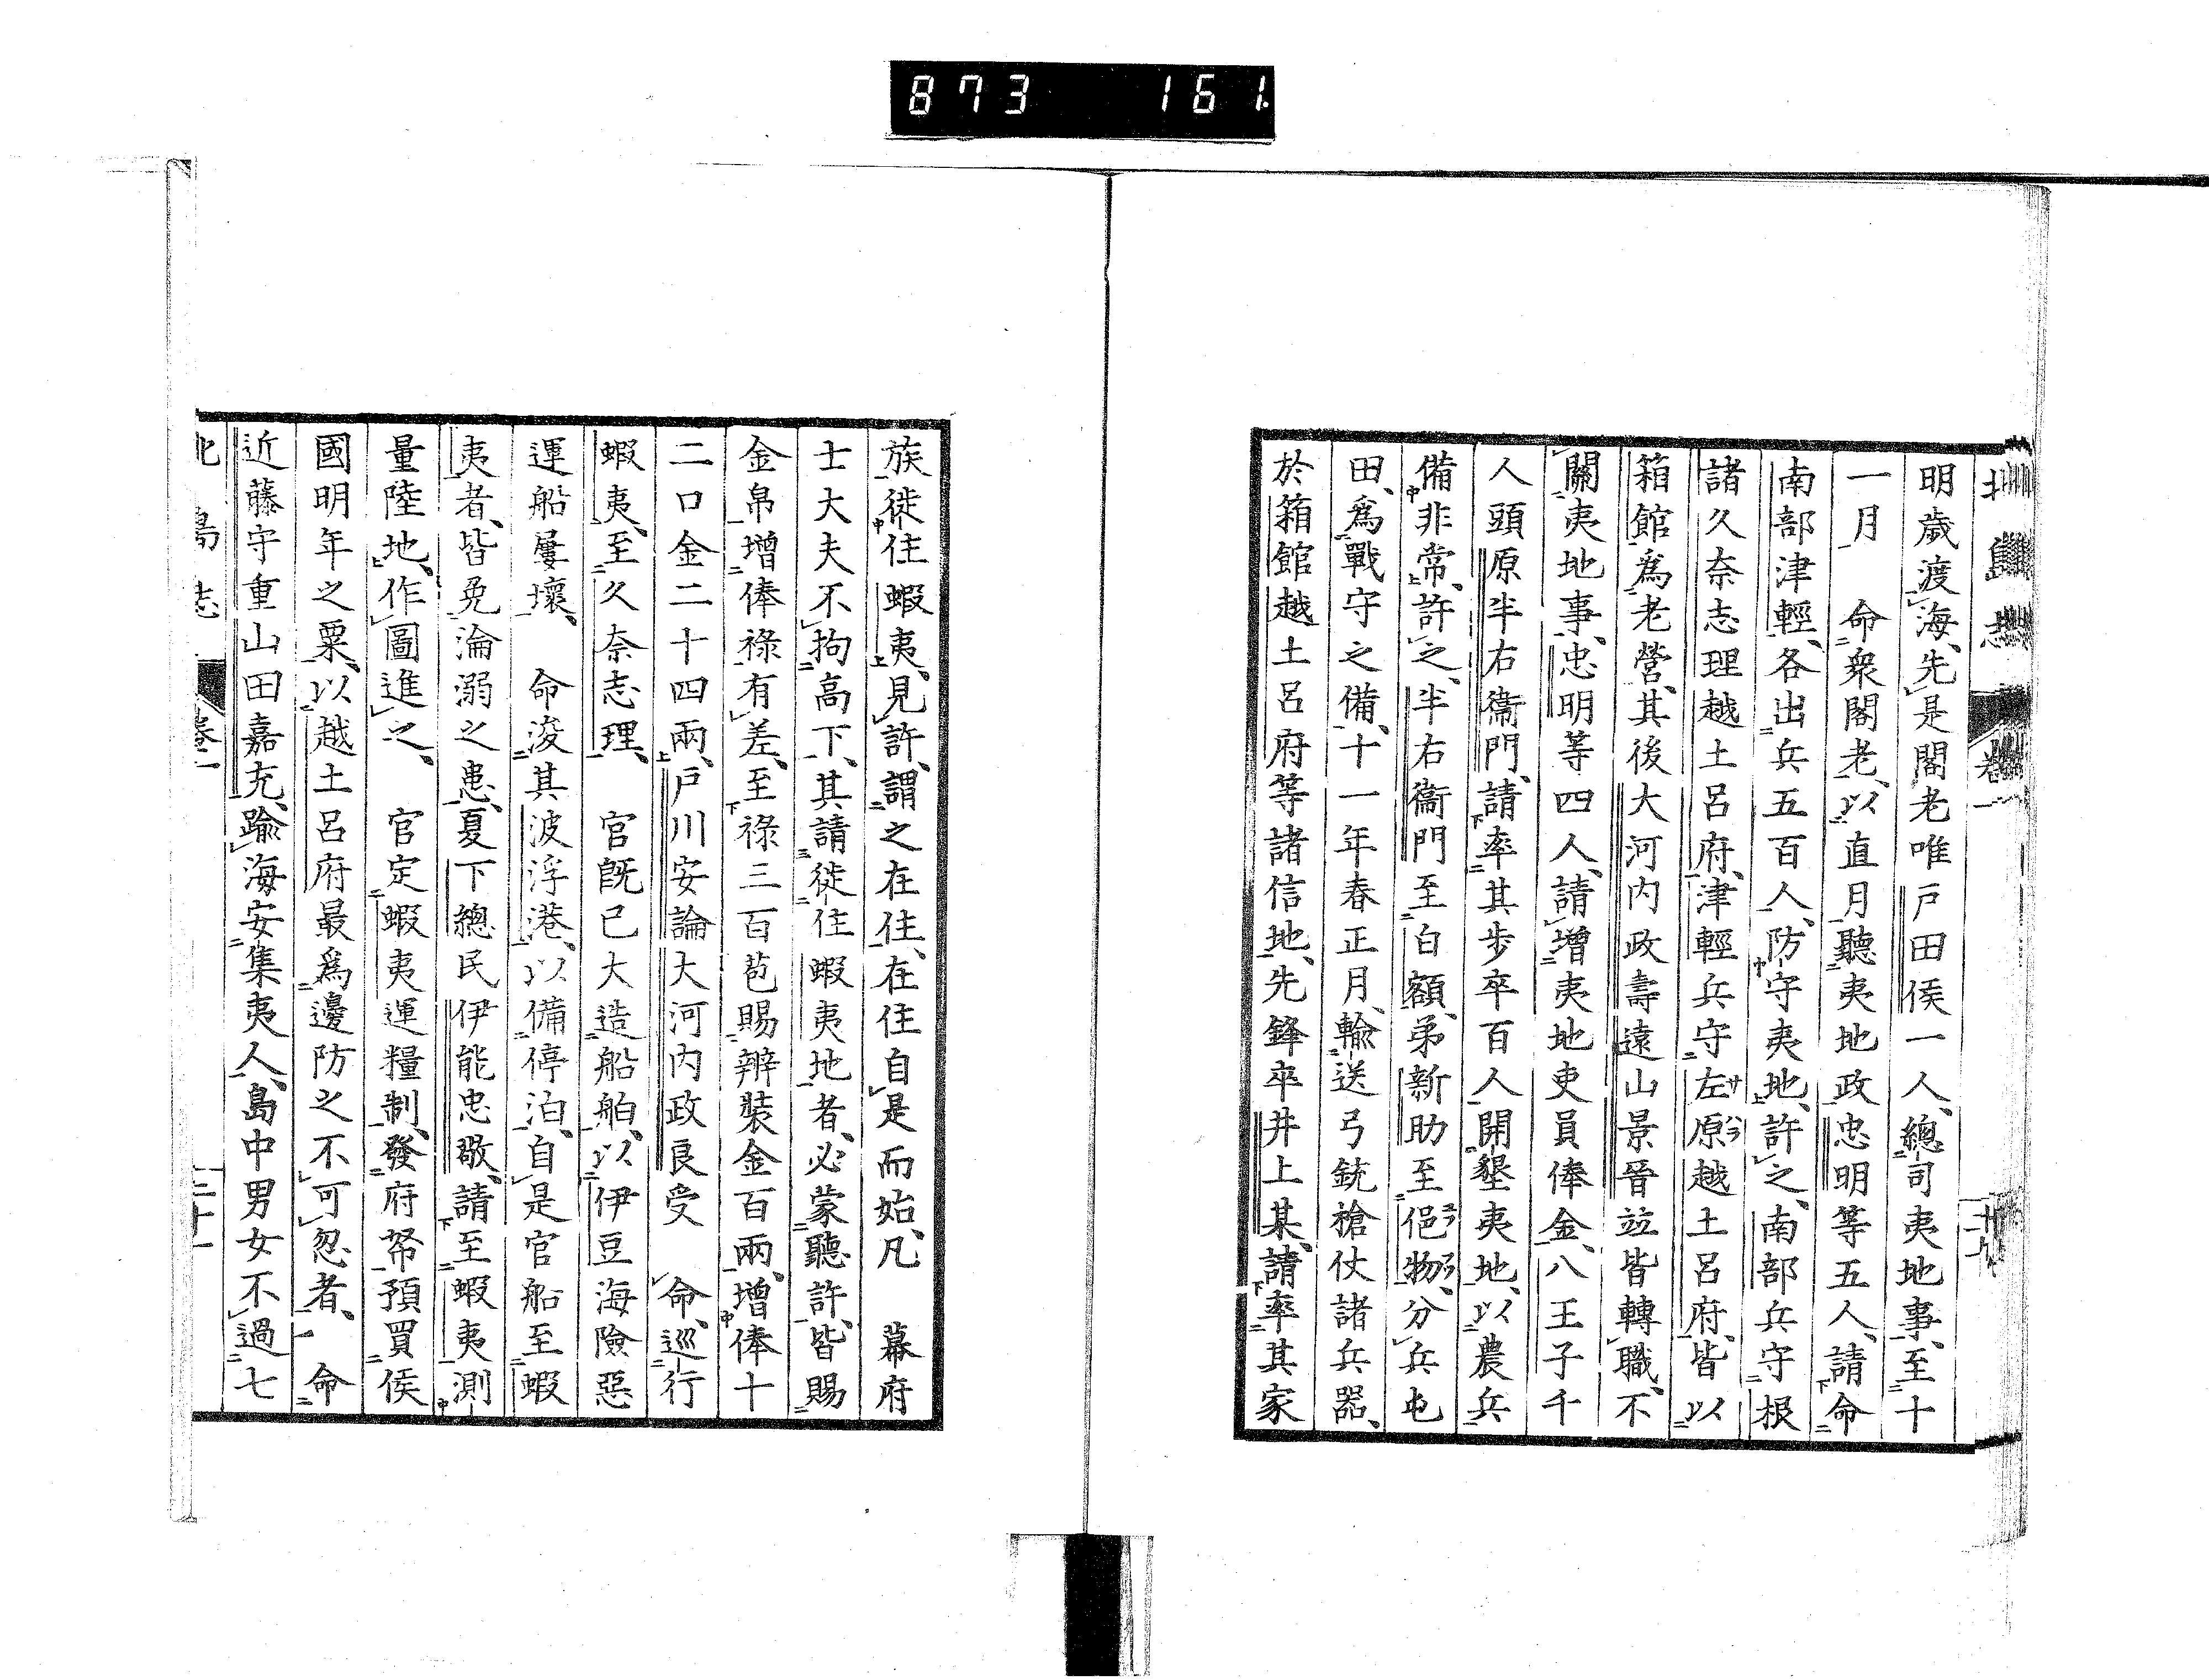 873 161
北島志 卷一 二十九
明歳渡海、先是閣老唯戸田侯一人、總司夷地事、至十
一月 命衆閣老、以直月聽夷地政、忠明等五人、請命
南部津輕、各出兵五百人、防守夷地、許之、南部兵守根
諸久奈志理越土呂府、津輕兵守左原越土呂府、皆以
箱館爲老營、其後大河内政壽遠山景晉竝皆轉職、不
關夷地事、忠明等四人、請増夷地吏員俸金、八王子千
人頭原半右衞門、請率其歩卒百人、開墾夷地、以農兵
備非常、許之、半右衞門至白額、弟新助至俋物、分兵屯
田、爲戰守之備、十一年春正月、輸送弓銃槍仗諸兵器、
於箱館越土呂府等諸信地、先鋒卒井上某、請率其家
族、徙住蝦夷、見許、謂之在住、在住自是而始、凡 幕府
士大夫不拘高下、其請徙住蝦夷地者、必蒙聽許、皆賜
金帛増俸祿有差、至祿三百苞賜辨裝金百兩、増俸十
二口金二十四兩、戸川安論大河内政良受 命、巡行
蝦夷、至久奈志理、 官既已大造船舶、以伊豆海險惡
運船屢壞、 命浚其波浮港、以備停泊、自是官船至蝦
夷者、皆免淪溺之患、夏下總民伊能忠敬、請至蝦夷測
量陸地、作圖進之、 官定蝦夷運糧制、發府帑預買侯
國明年之粟、以越土呂府最爲邊防之不可忽者、 命
近藤守重山田嘉充、踰海安集夷人、島中男女不過七
北島志 卷一 三十一